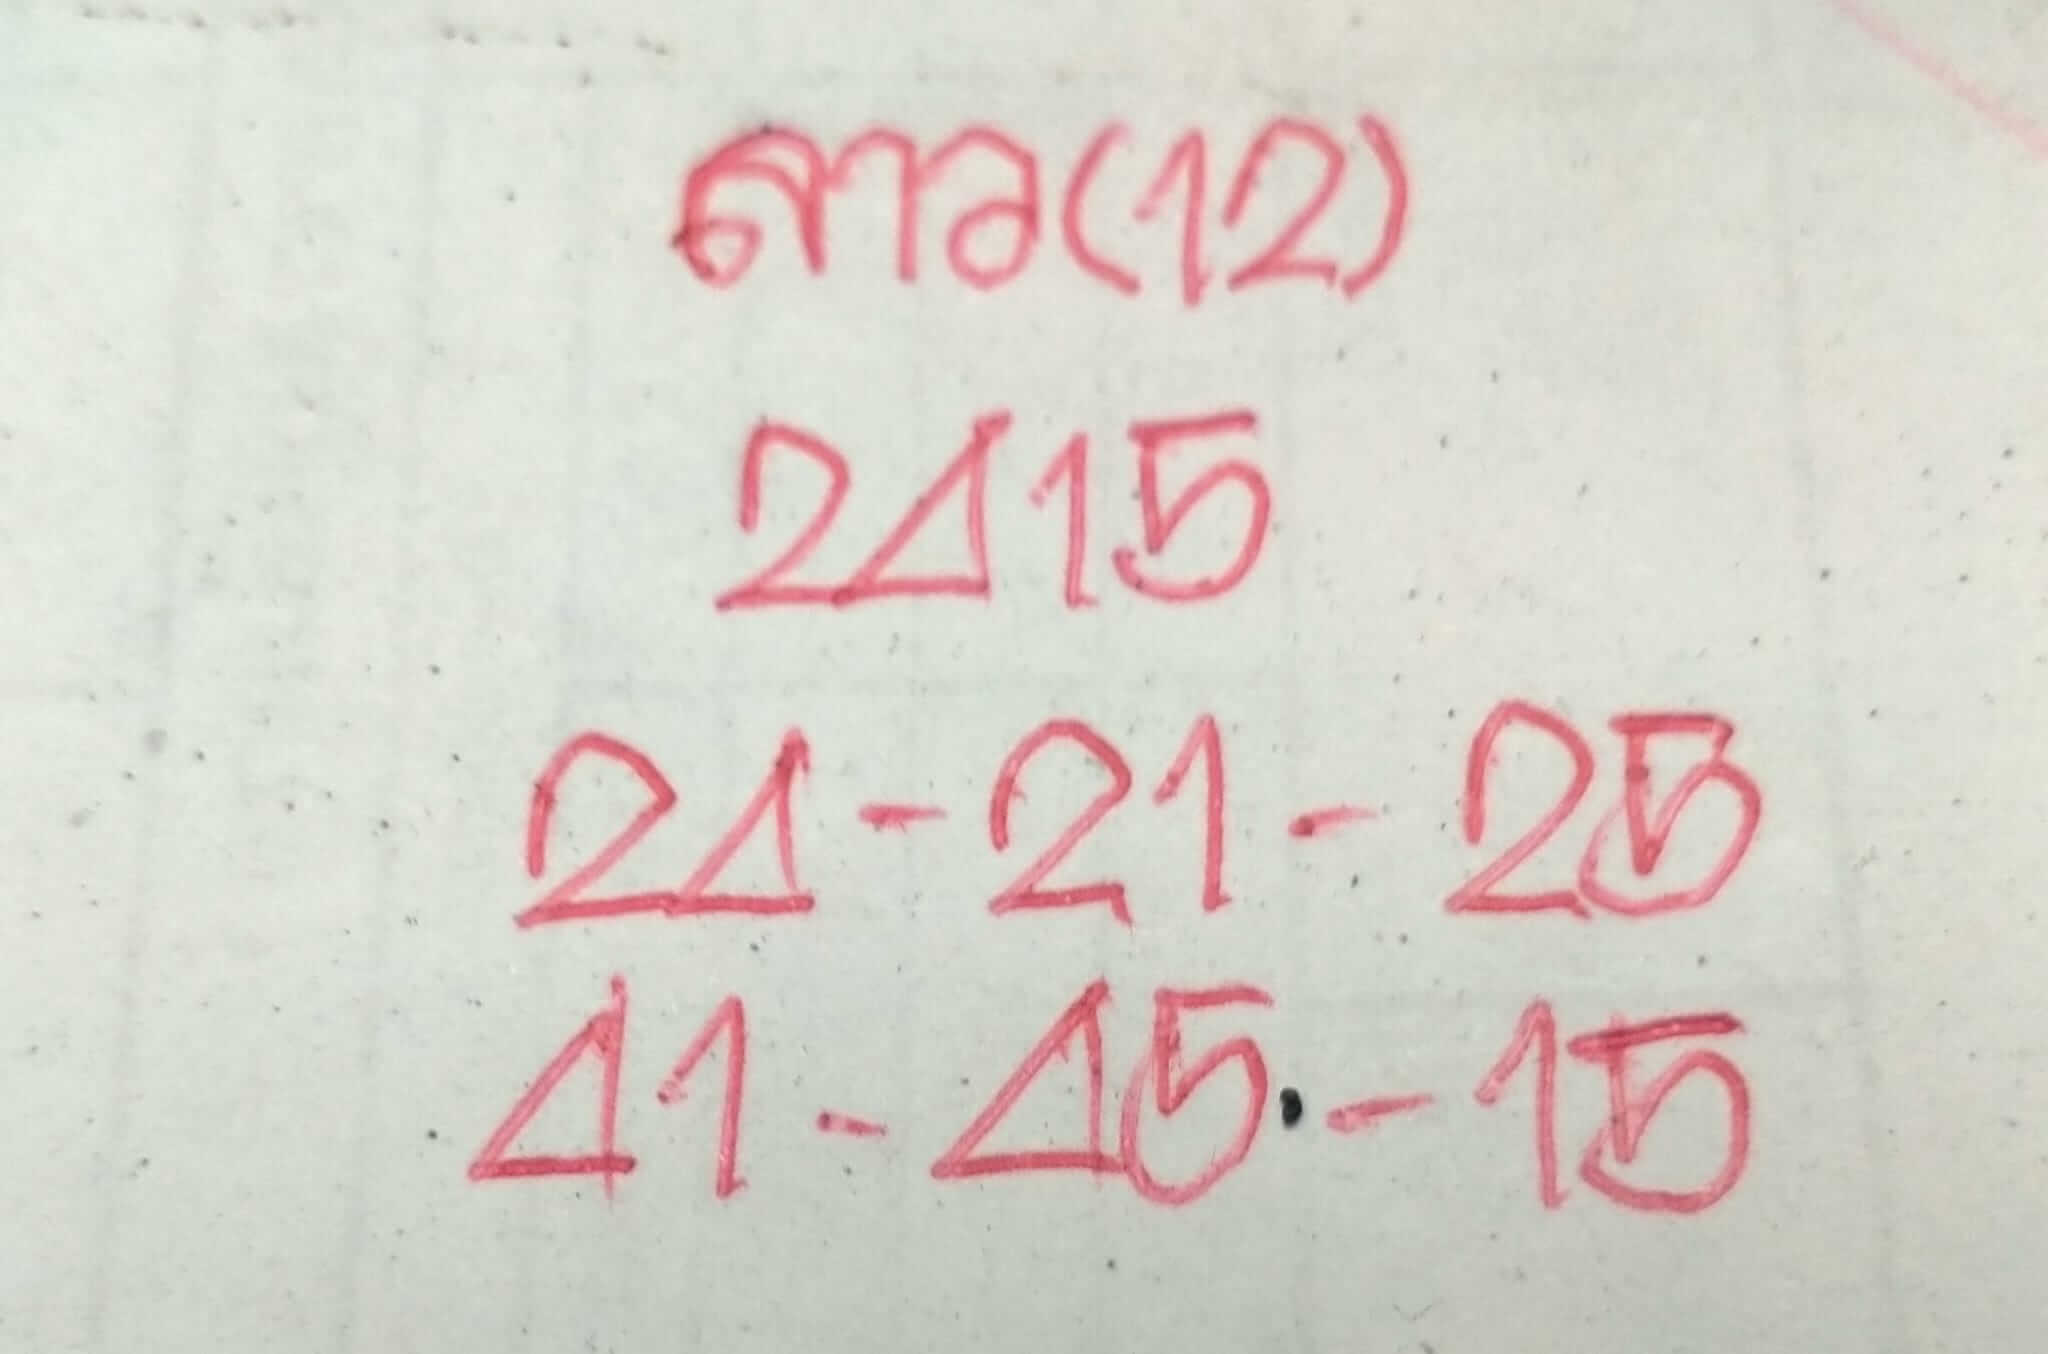 ลาว(12)
2415
24-21-25
41-45-15